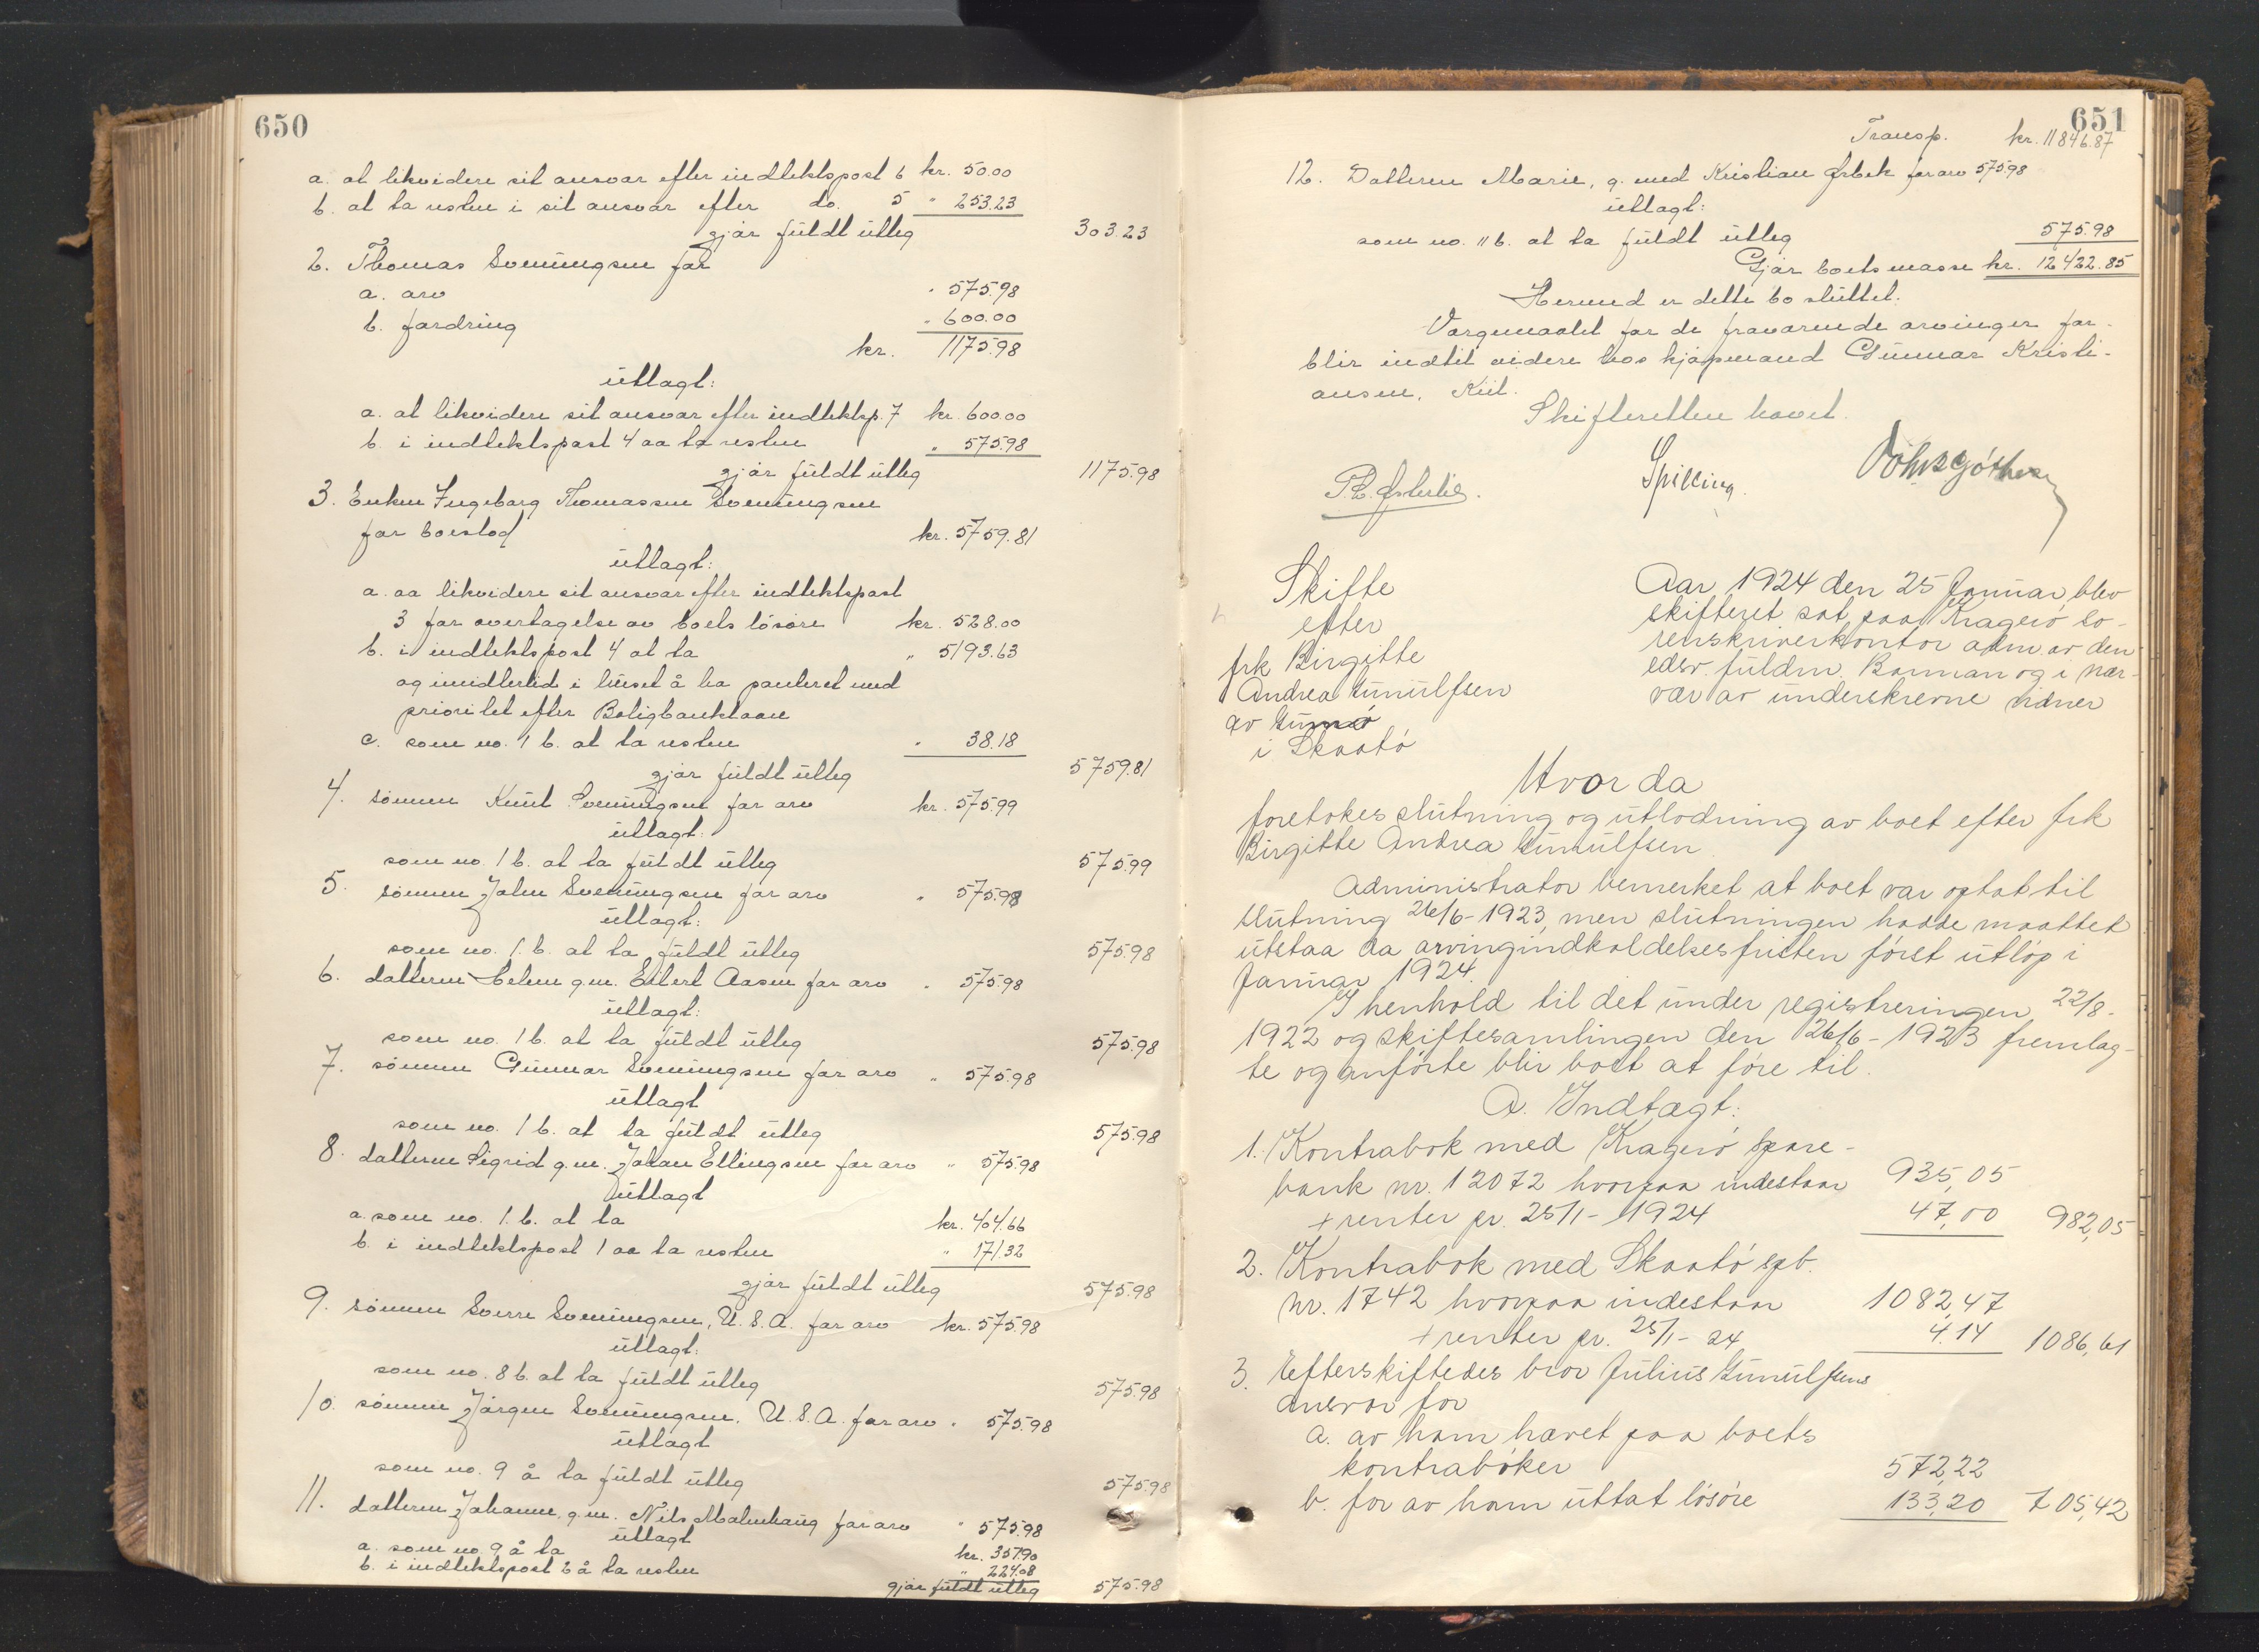 650
a. at likvidere sit ansvar efter indtektspost 6 kr. 50.00
b. at ta resten i sit ansvar efter do. 5 " 253.23
gjør fuldt utlæg 303.23
2. Thomas Svenningsen for
a. arv " 575.98
b. fordring " 600.00
kr. 1175.98
utlagt:
a. at likvidere sit ansvar efter indtektsp. 7 kr. 600.00
b. i indtektspost 4 aa ta resten " 575.98
gjør fuldt utlæg 1175.98
3. Enken Ingeborg Thomassen Svenningsen
for boeslod kr. 5759.81
utlagt:
a. aa likvidere sit ansvar efter indtektspost
3 for overtagelse av boets løsøre kr. 528.00
b. i indtektspost 4 at ta " 5193.63
og imidlertid i huset å ha panteret med
prioritet efter Boligbanklaan
c. som no. 1 b. at ta resten " 38.18
gjør fuldt utlæg 5759.81
4. sønnen Knut Svenningsen for arv kr. 575.99
utlagt:
som no. 1 b. at ta fuldt utlæg 575.99
5. sønnen John Svenningsen for arv " 575.98
utlagt:
som no. 1. b. at ta fuldt utlæg 575.98
6. datteren Helene g.m. Eilert Aasen for arv " 575.98
utlagt:
som no. 1 b. at ta fuldt utlæg 575.98
7. sønnen Gunnar Svenningsen for arv " 575.98
utlagt
som no. 1 b. at ta fuldt utlæg 575.98
8. datteren Sigrid g.m. Johan Ellingsen for arv " 575.98
utlagt
a. som no. 1. b. at ta kr. 404.66
b. i indtektspost 1 aa ta resten " 171.32
gjør fuldt utlæg 575.98
9. sønnen Sverre Svenningsen, U.S.A. for arv kr. 575.98
utlagt:
som no. 8 b. at ta fuldt utlæg 575.98
10. sønnen Jørgen Svenningsen. U.S.A. for arv " 575.98
utlagt
som no. 9 å ta fuldt utlæg 575.98
11. datteren Johanne g.m. Nils Malmhaug for arv " 575.98
utlagt
a. som no. 9 å ta kr. 351.90
b. i indtektspost 2 å ta resten " 224.08
gjør fuldt utlæg 575.98
651
Transp. kr. 11846.87
12. Datteren Marie, g. med Kristian Ørbek for arv 575.98
utlagt:
som no. 11 b. at ta fuldt utlæg 575.98
Gjør boets masse kr. 12422.85
Hermed er dette bo sluttet.
Vargemaalet for de fraværende arvinger for-
blir indtil videre hos kjøpmand Gunnar Kristi-
ansen, Kiil.
Skifteretten hævet.
Spilling.
Skifte
efter
frk Birgitte
Andrea Gunulfsen
av Gumø
i Skaatø
Aar 1924 den 25 Januar blev
skifteret sat paa Kragerø so-
renskriverkontor adm. av den
edsv. fuldm. Borman og i nær-
vær av underskrevne vidner
Hvor da
foretokes slutning og utlodning av boet efter frk
Birgitte Andrea Gunulfsen
Administrator bemerket at boet var optat til
slutning 26/6-1923, men slutningen hadde maattet
utstaa da arvingindkaldelsesfristen først utløp i
Januar 1924.
I henhold til det under registreringen 22/8-
1922 og skiftesamlingen den 26/6-1923 fremlag-
te og anførte blir boet at føre til.
A. Indtægt:
1. Kontrabok med Kragerø Spare-
bank nr. 12072 hvorpaa indestaar 935,05
+ renter pr. 25/1-1924 47,00 982,05
2. Kontrabok med Skaatø spb.
nr. 1742 hvorpaa indestaar 1082,47
+ renter pr. 25/1-24 4.14 1086,61
3. Efterskiftedes bror Julius Gunulfsens
ansvar for
a. av ham hævet paa boets
kontrabøker 572,22
b. for av ham uttat løsøre 133,20 705,42